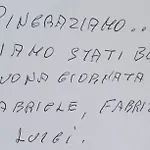 RINGRAZIAMO...
SIAMO STATI B
UONA GIORNATA
GABRIELE, FABRIZ
LUIGI.